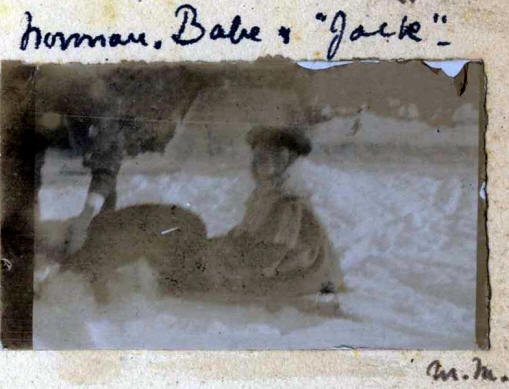 Norman, Babe & "Jack"
m.m.